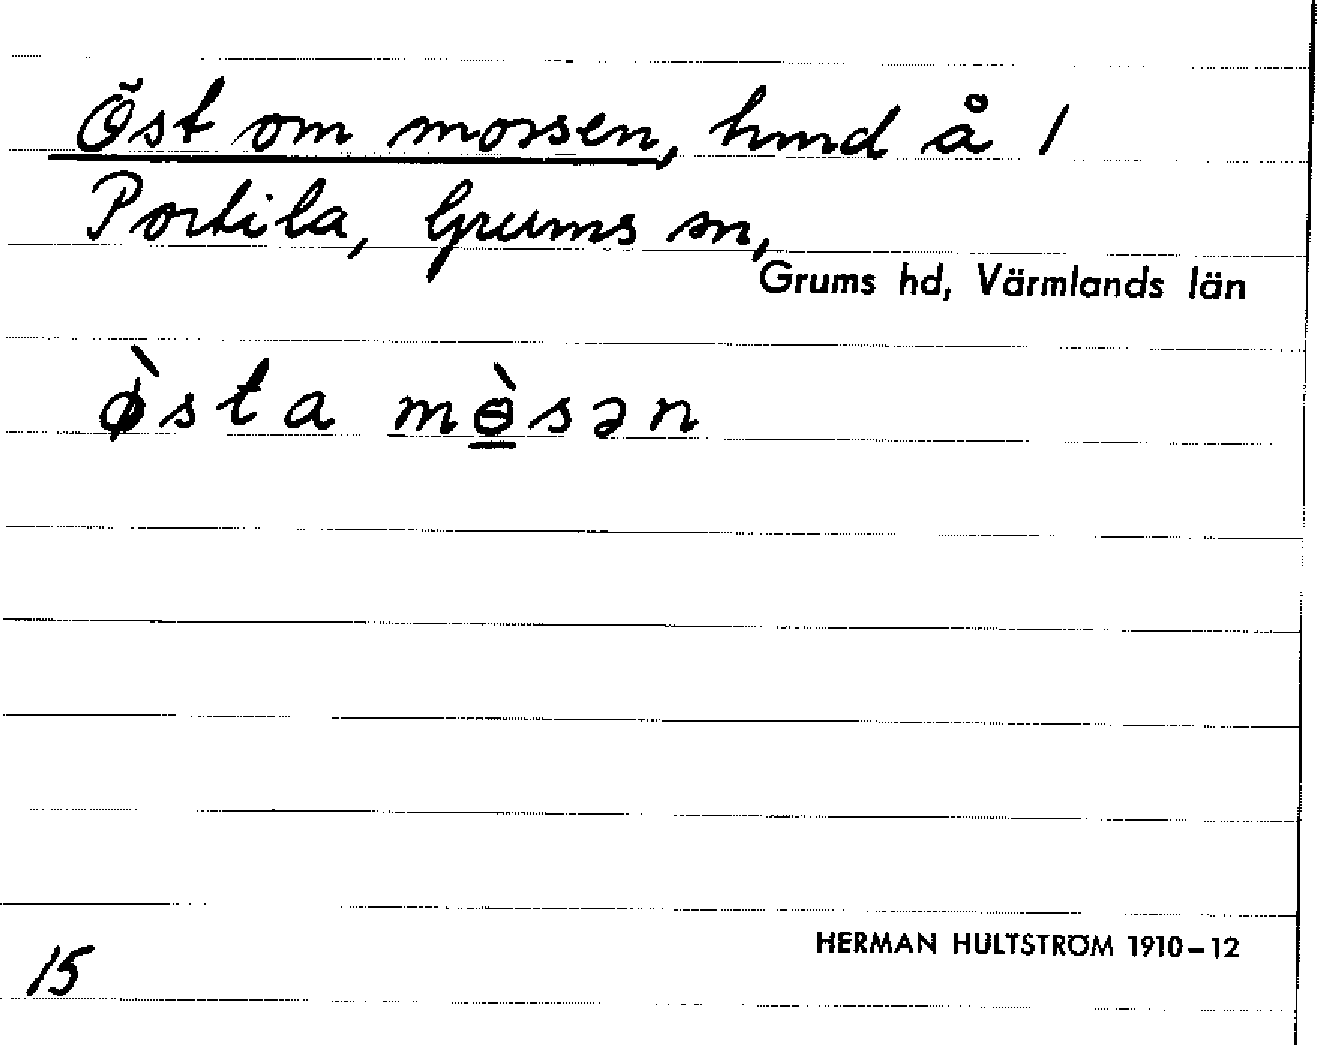 Öst om mossen, hmd å 1
Portila, Grums sn,
Grums hd, Värmlands län
ø̀sta mɵ̲̀sən
HERMAN HULTSTRÖM 1910–12
15